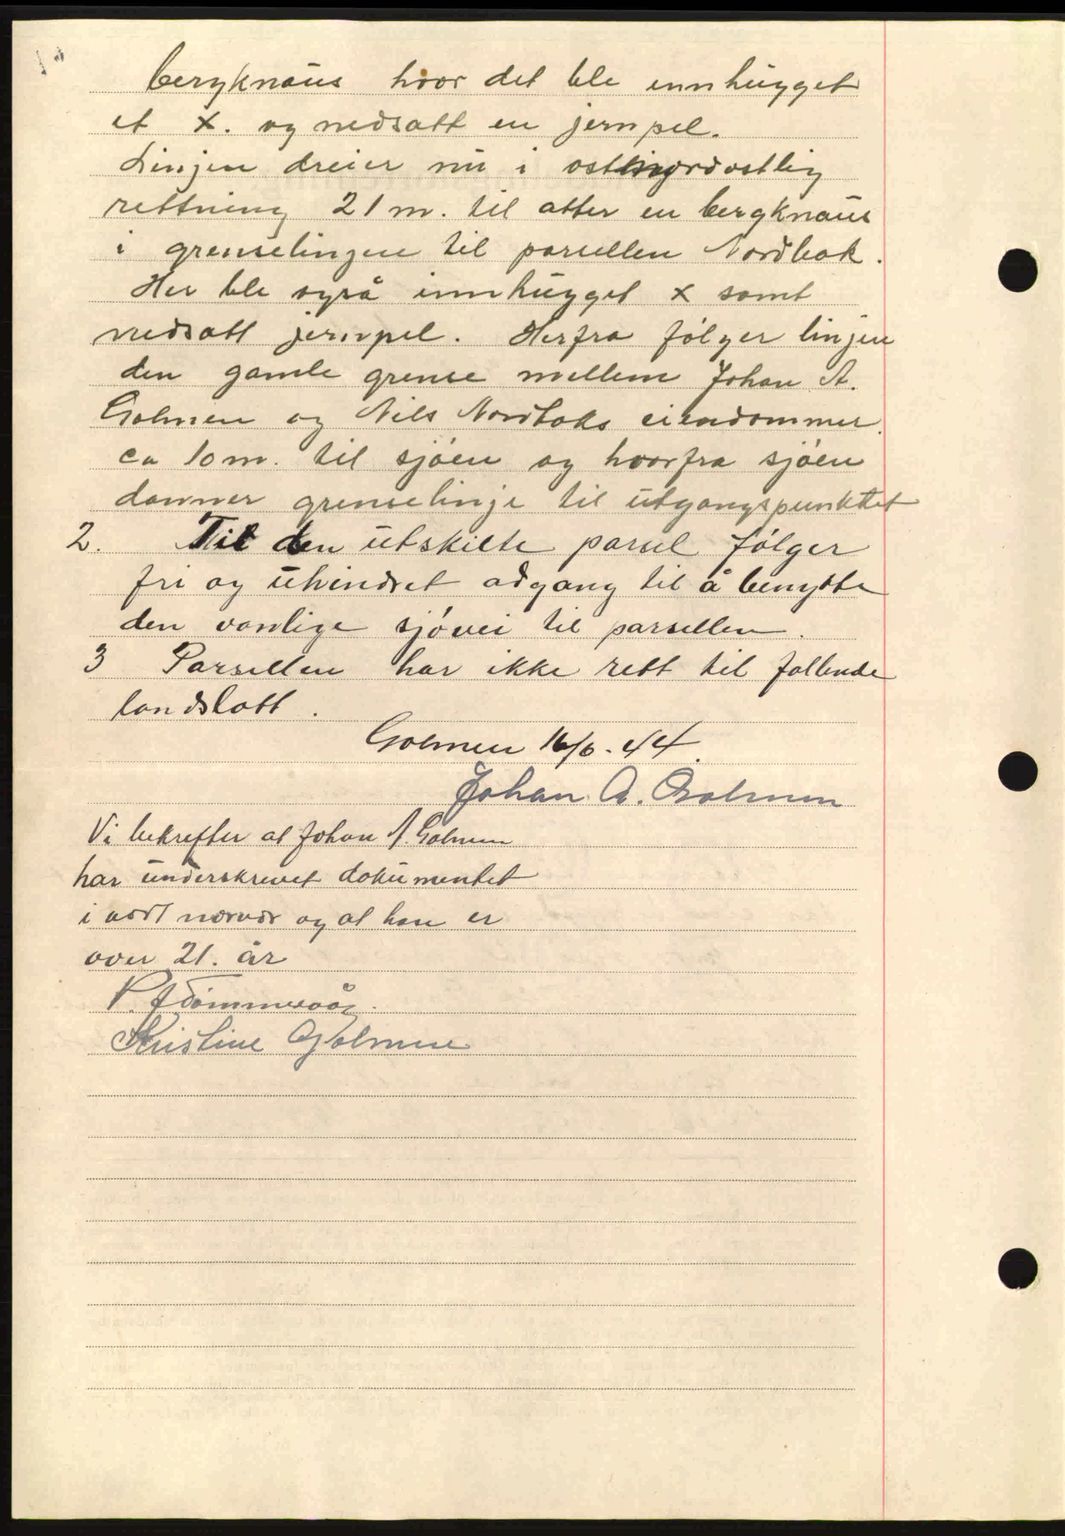 bergknaus hvor det ble innhugget
et X. og nedsatt en jernpel.
Linjen dreier nu i ost nordostlig
rettning 21 m. til atter en bergknaus
i grenselinjen til parsellen Nordbak.
Her ble også innhugget x samt
nedsatt jernpel. Herfra følger linjen
den gamle grense mellem Johan A.
Golmen og Nils Nordbaks eiendommer.
ca 10 m. til sjøen og hvorfra sjøen
danner grenselinje til utgangspunktet
2. Til den utskilte parsel følger
fri og uhindret adgang til å benytte
den vanlige sjøvei til parsellen.
3 Parsellen har ikke rett til fallende
landslott.
Golmen 16/6. 44.
Johan A. Golmen
Vi bekrefter at Johan A. Golmen
har underskrevet dokumentet
i vort nærvær og at han er
over 21. år
P.
Kristine Golmen